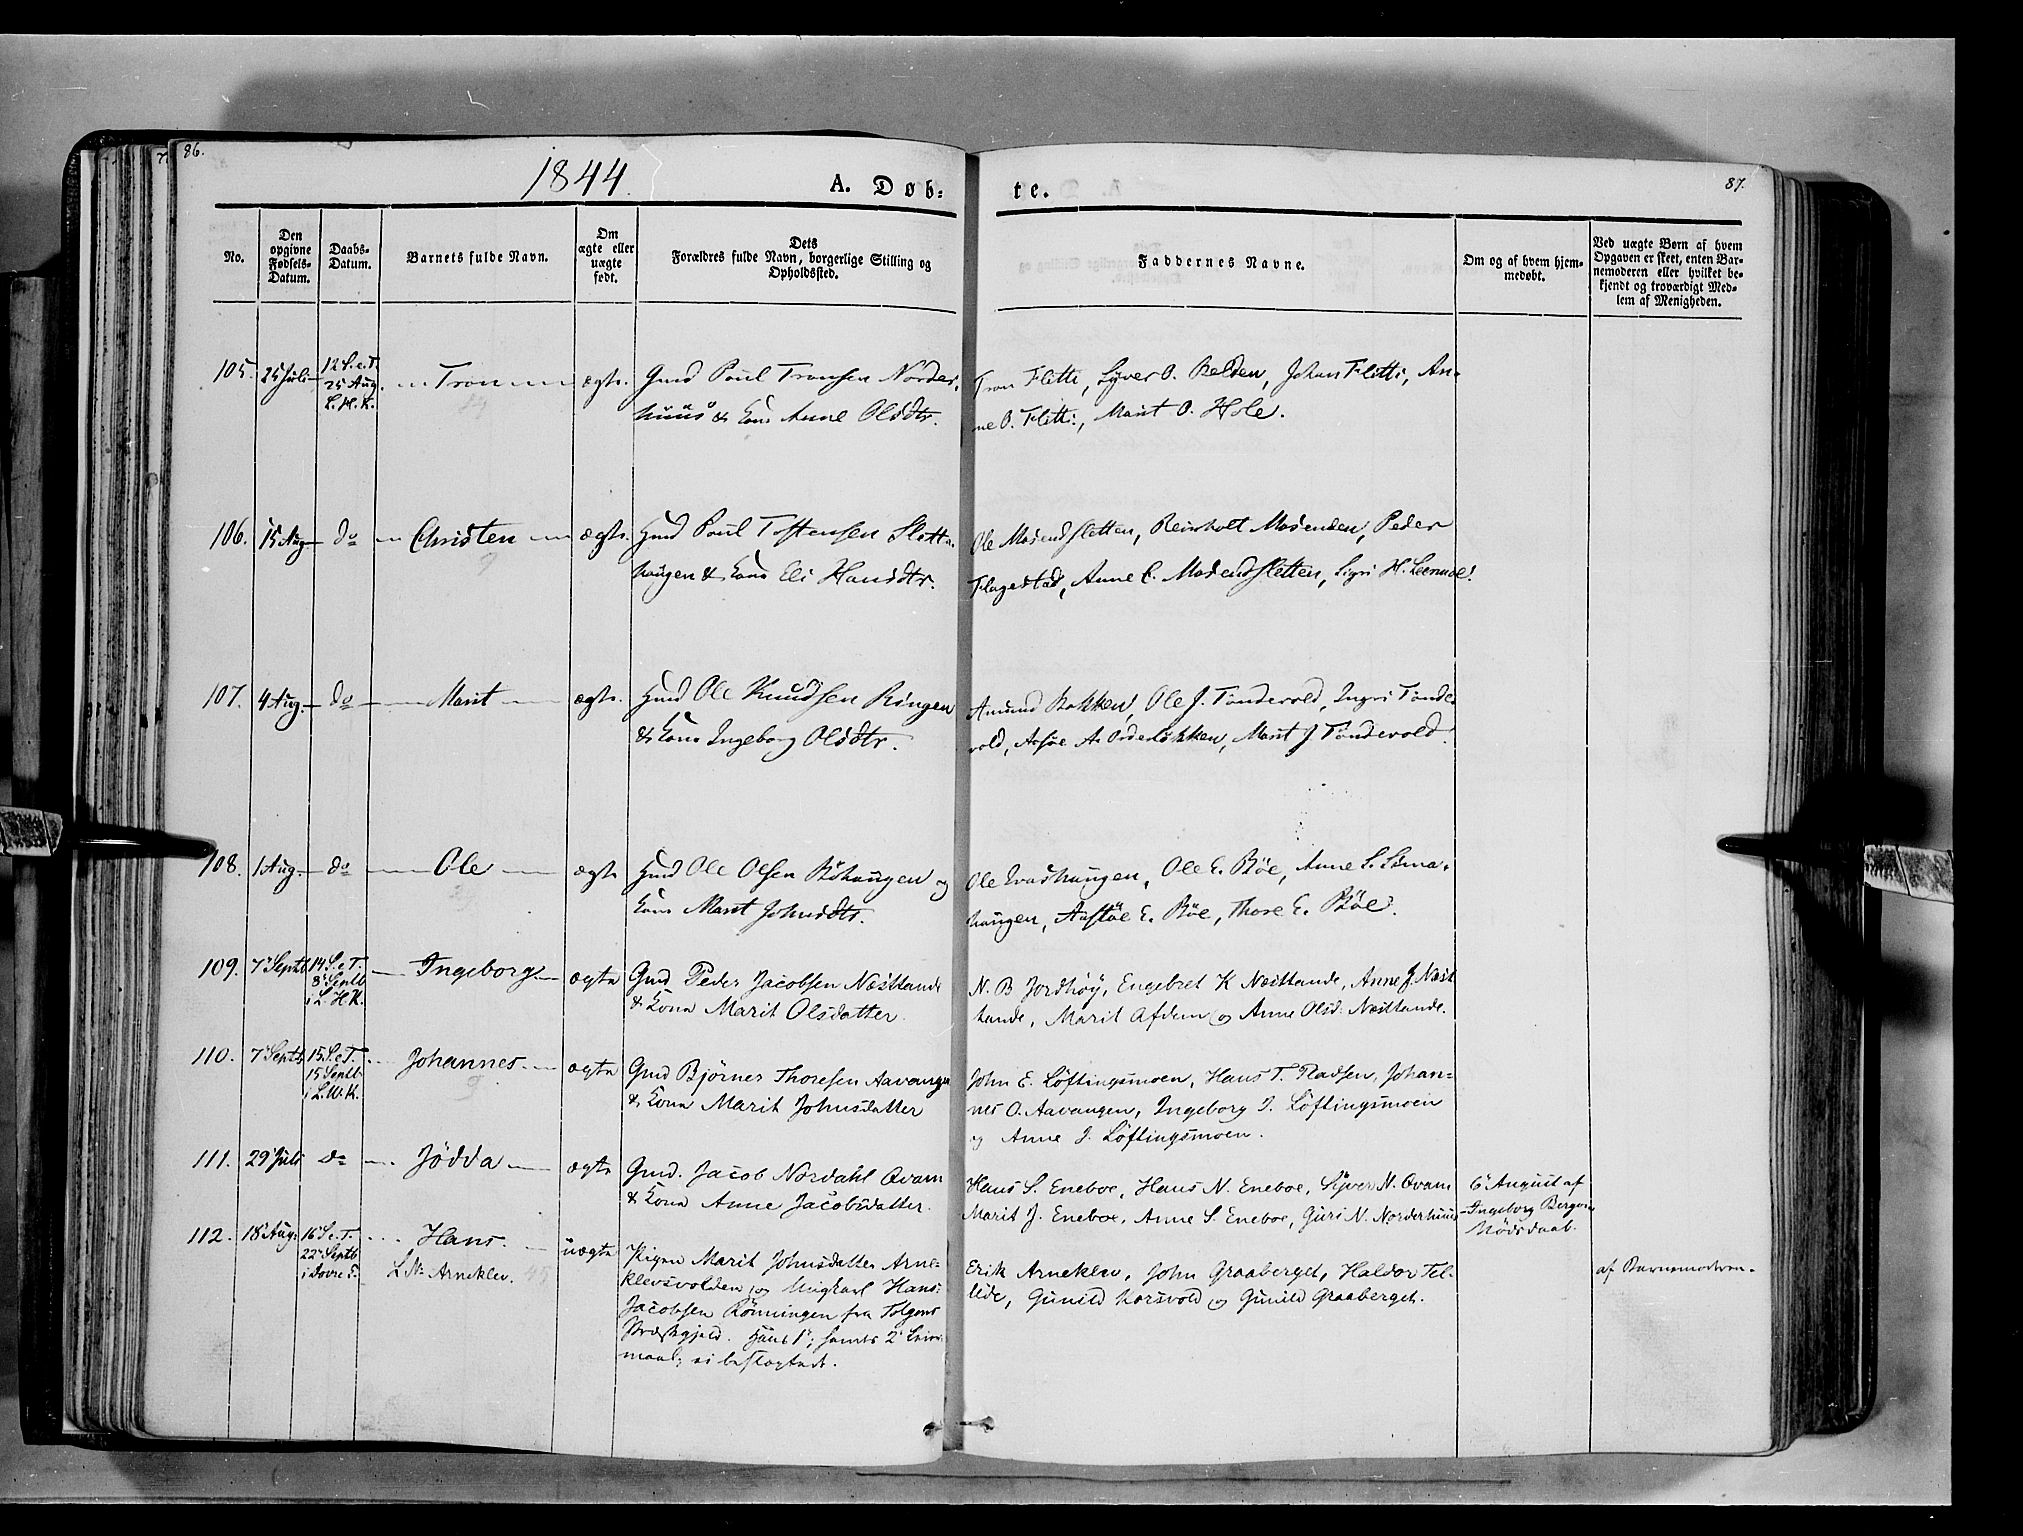 86.
1844.
A. Døb-
te.
87.
No.
Den opgivne Fødsels-Datum.
Daabs-Datum.
Barnets fulde Navn.
Om ægte eller uægte født.
Dets Forældres fulde Navn, borgerlige Stilling og Opholdssted.
Faddernes Navne.
Om og af hvem hjem-medøbt.
Ved uægte Børn af hvem Opgaven er skeet, enten Bar-nemoderen eller hvilket be-kjendt og troværdigt Med-lem af Menigheden.
105. 25 Juli 12 S. e. T. 25 Aug. L. H. K. Tron ægte. Gmd Poul Tronsen Norder-
huus & Kone Anne Olsdtr.
Tron Flitti, Syver O. Belden, Johan Flitti, An-
ne O. Flitti, Marit O. Hole.
106. 15 Aug do Christen ægte. Hmd Poul Tostensen Slett-
haugen & Kone Eli Hansdtr.
Ole Mosendsletten, Reinholt Mosenden, Peder
Flagestad, Anne C. Mosendsletten, Sigri H.
107. 4 Aug. do Marit ægte. Hmd Ole Knudsen Ringen
& Kone Ingeborg Olsdtr.
Amund Bakken, Ole J. Tøndevold, Ingri Tønde-
vold, A. Orderløkken, Marit J Tøndevold.
108. 1 Aug. do Ole ægte Hmd Ole Olsen Böhaugen og
Kone Marit Johnsdtr.
Ole haugen, Ole E. Böe, Anne S.
haugen, Aaste E. Böe, Thore E. Böe.
109. 7 Septb 14 S. e T. 8 Septb i L. H. K. Ingeborg ægte Gmd Peder Jacobsen Næstande
& Kone Marit Olsdatter.
N. B Jordhøy, Engebret K Næstande, Anne J. Næst-
tande, Marit Afdem og Anne Olsd. Næstande.
110. 7 Septb 15. S. e T. 15 Septb. i L. H. K. Johannes ægte Gmd Bjørner Thoresen Aavangen
& Kone Marit Johnsdatter
John E. Löftingsmoen, Hans T. Pladsen, Johan-
nes O. Aavangen, Ingeborg J. Löftingsmoen
og Anne J. Löftingsmoen.
111. 29 Juli do Jödda ægte Gmd. Jacob Nordahl Qvam
& Kone Anne Jacobsdatter.
Hans S. Eneboe, Hans N. Eneboe, Syver N. Qvam
Marit J. Eneboe, Anne S. Eneboe, Guri N. Norderhuus
6 August af
Ingeborg Bergun
Nødsdaab.
112. 18 Aug. 16 S. e. T. 22 Septb i Dovre K. Hans. uægte Pigen Marit Johnsdatter Arne-
L. No Arneklev.
klevsvolden og Ungkarl Hans
Jacobsen Rønningen fra Tolgens
Præstegjeld. Hans 1, hendes 2 Leier-
maal, ei beslægtede.
Erik Arneklev, John Graaberget, Haldor Tel-
lide, Gunild Korsvold og Gunild Graaberget.
af Barnemoderen.